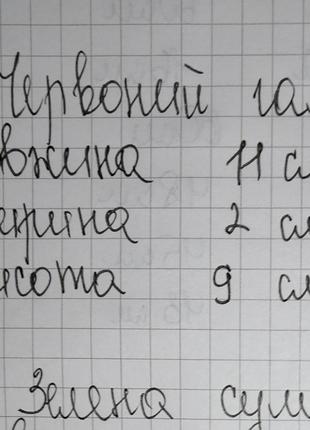 Червоний га
вжина 11 с
ирина 2 см
исота 9 см
Зелена сум